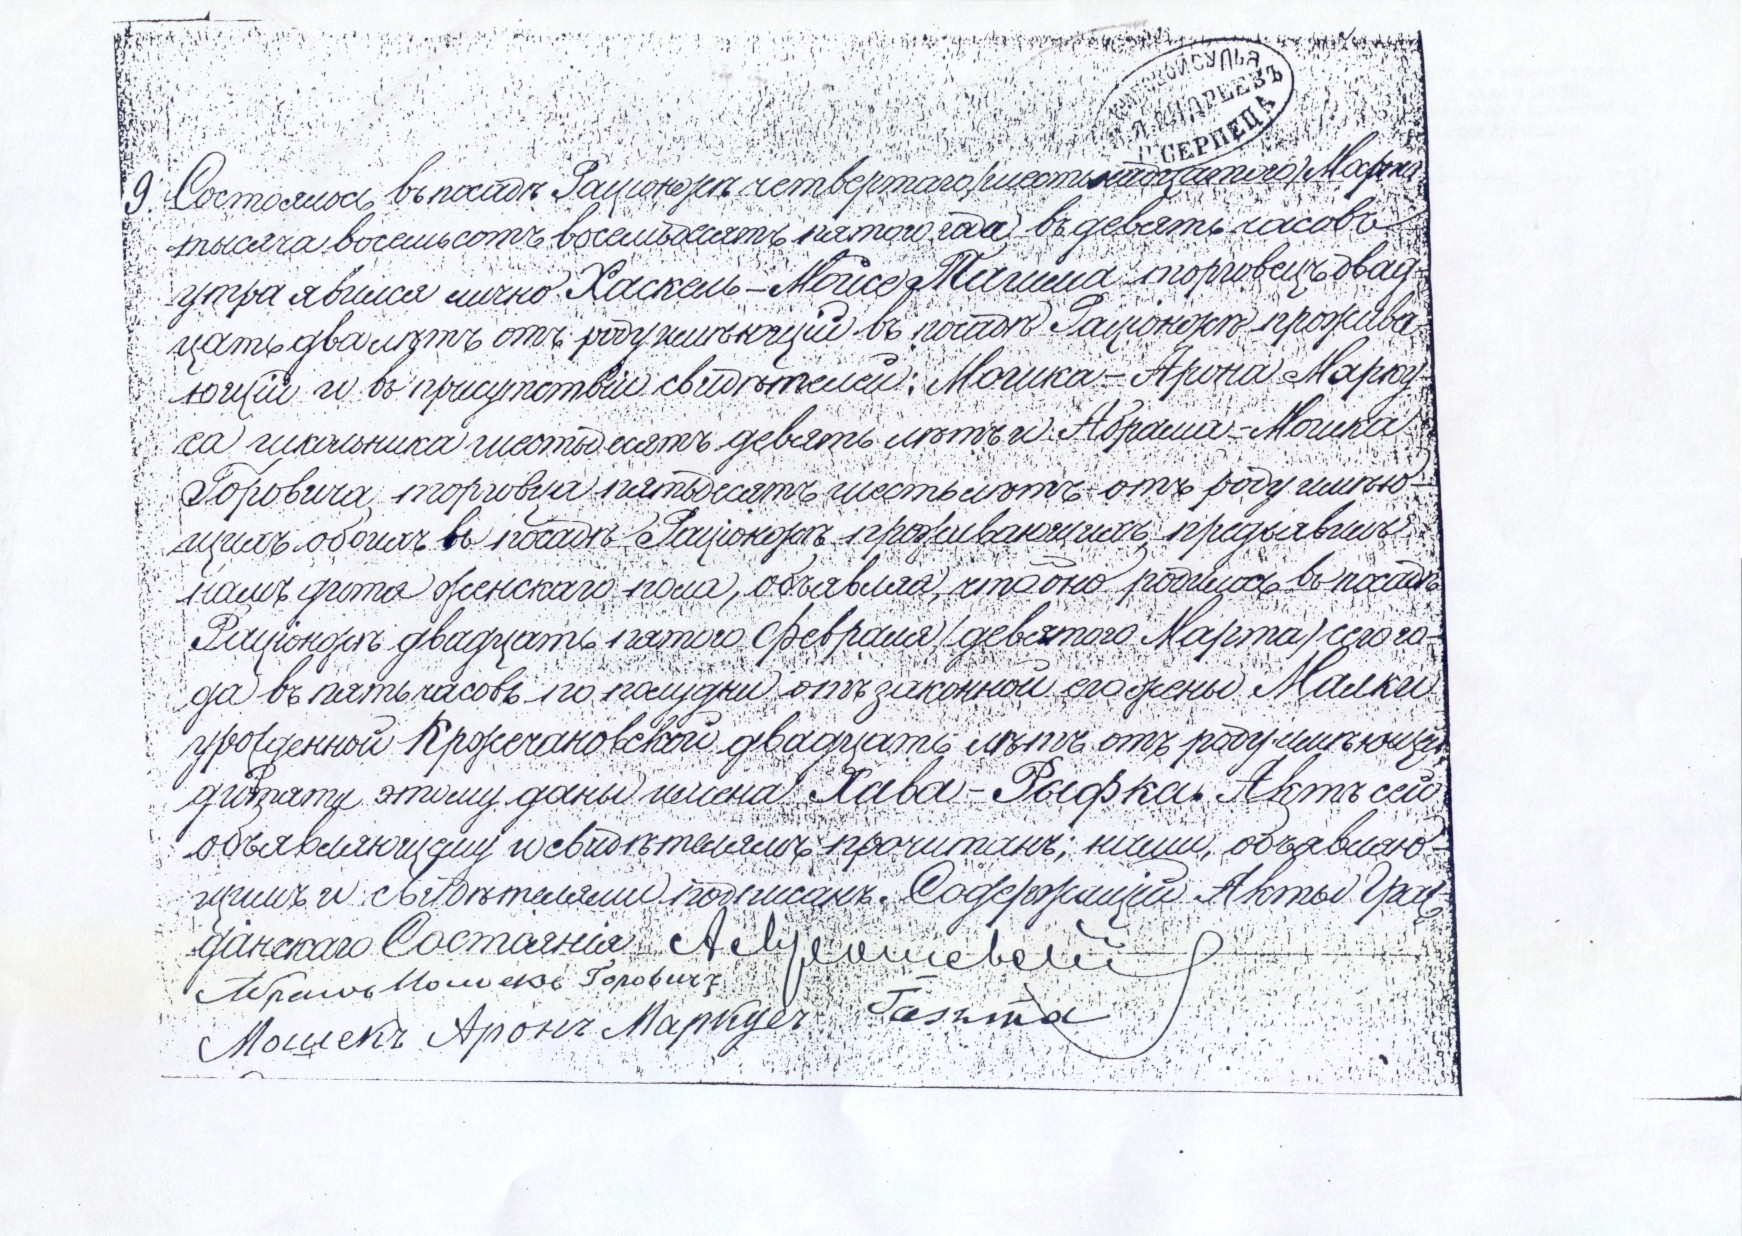 МИРОВОЙ СУДЬЯ
АНДРЕЕВЪ
СЕРПЕЦА
9. Состоялось въ посадѣ Раціонжѣ четвертаго (шестнадцатого) Марта
тысяча восемьсотъ восемьдесятъ пятого года въ девять часовъ
утра явился лично Хаскель-Мойсе торговецъ двад-
цать два лѣтъ отъ роду имѣющій въ посадѣ Раціонжѣ прожива-
ющій и въ присутствіи свидѣтелей: Мошка-Арона Марку-
са школьника шестьдесятъ девять лѣтъ и Абрама-Мошка
Горовича торговца пятьдесятъ шесть лѣтъ отъ роду имѣю-
щихъ обоихъ въ посадѣ Раціонжѣ проживающихъ предъявилъ
намъ дитя женскаго пола, объявляя, что оно родилось въ посадѣ
Раціонжѣ двадцать пятого Февраля (девятого Марта) сего го-
да въ пять часовъ по полудни отъ законной его жены Малки
урожденной Кржечановской двадцать лѣтъ отъ роду имѣющей
дитяти этому даны имена Хава-Рыфка. Актъ сей
объявляющему и свидѣтелямъ прочитанъ, нами, объявляю-
щимъ и свидѣтелями подписанъ. Содержащій Акты Граж-
данскаго Состоянія
Абрамъ Мошекъ Горовичъ
Мошекъ Аронъ Маркусъ